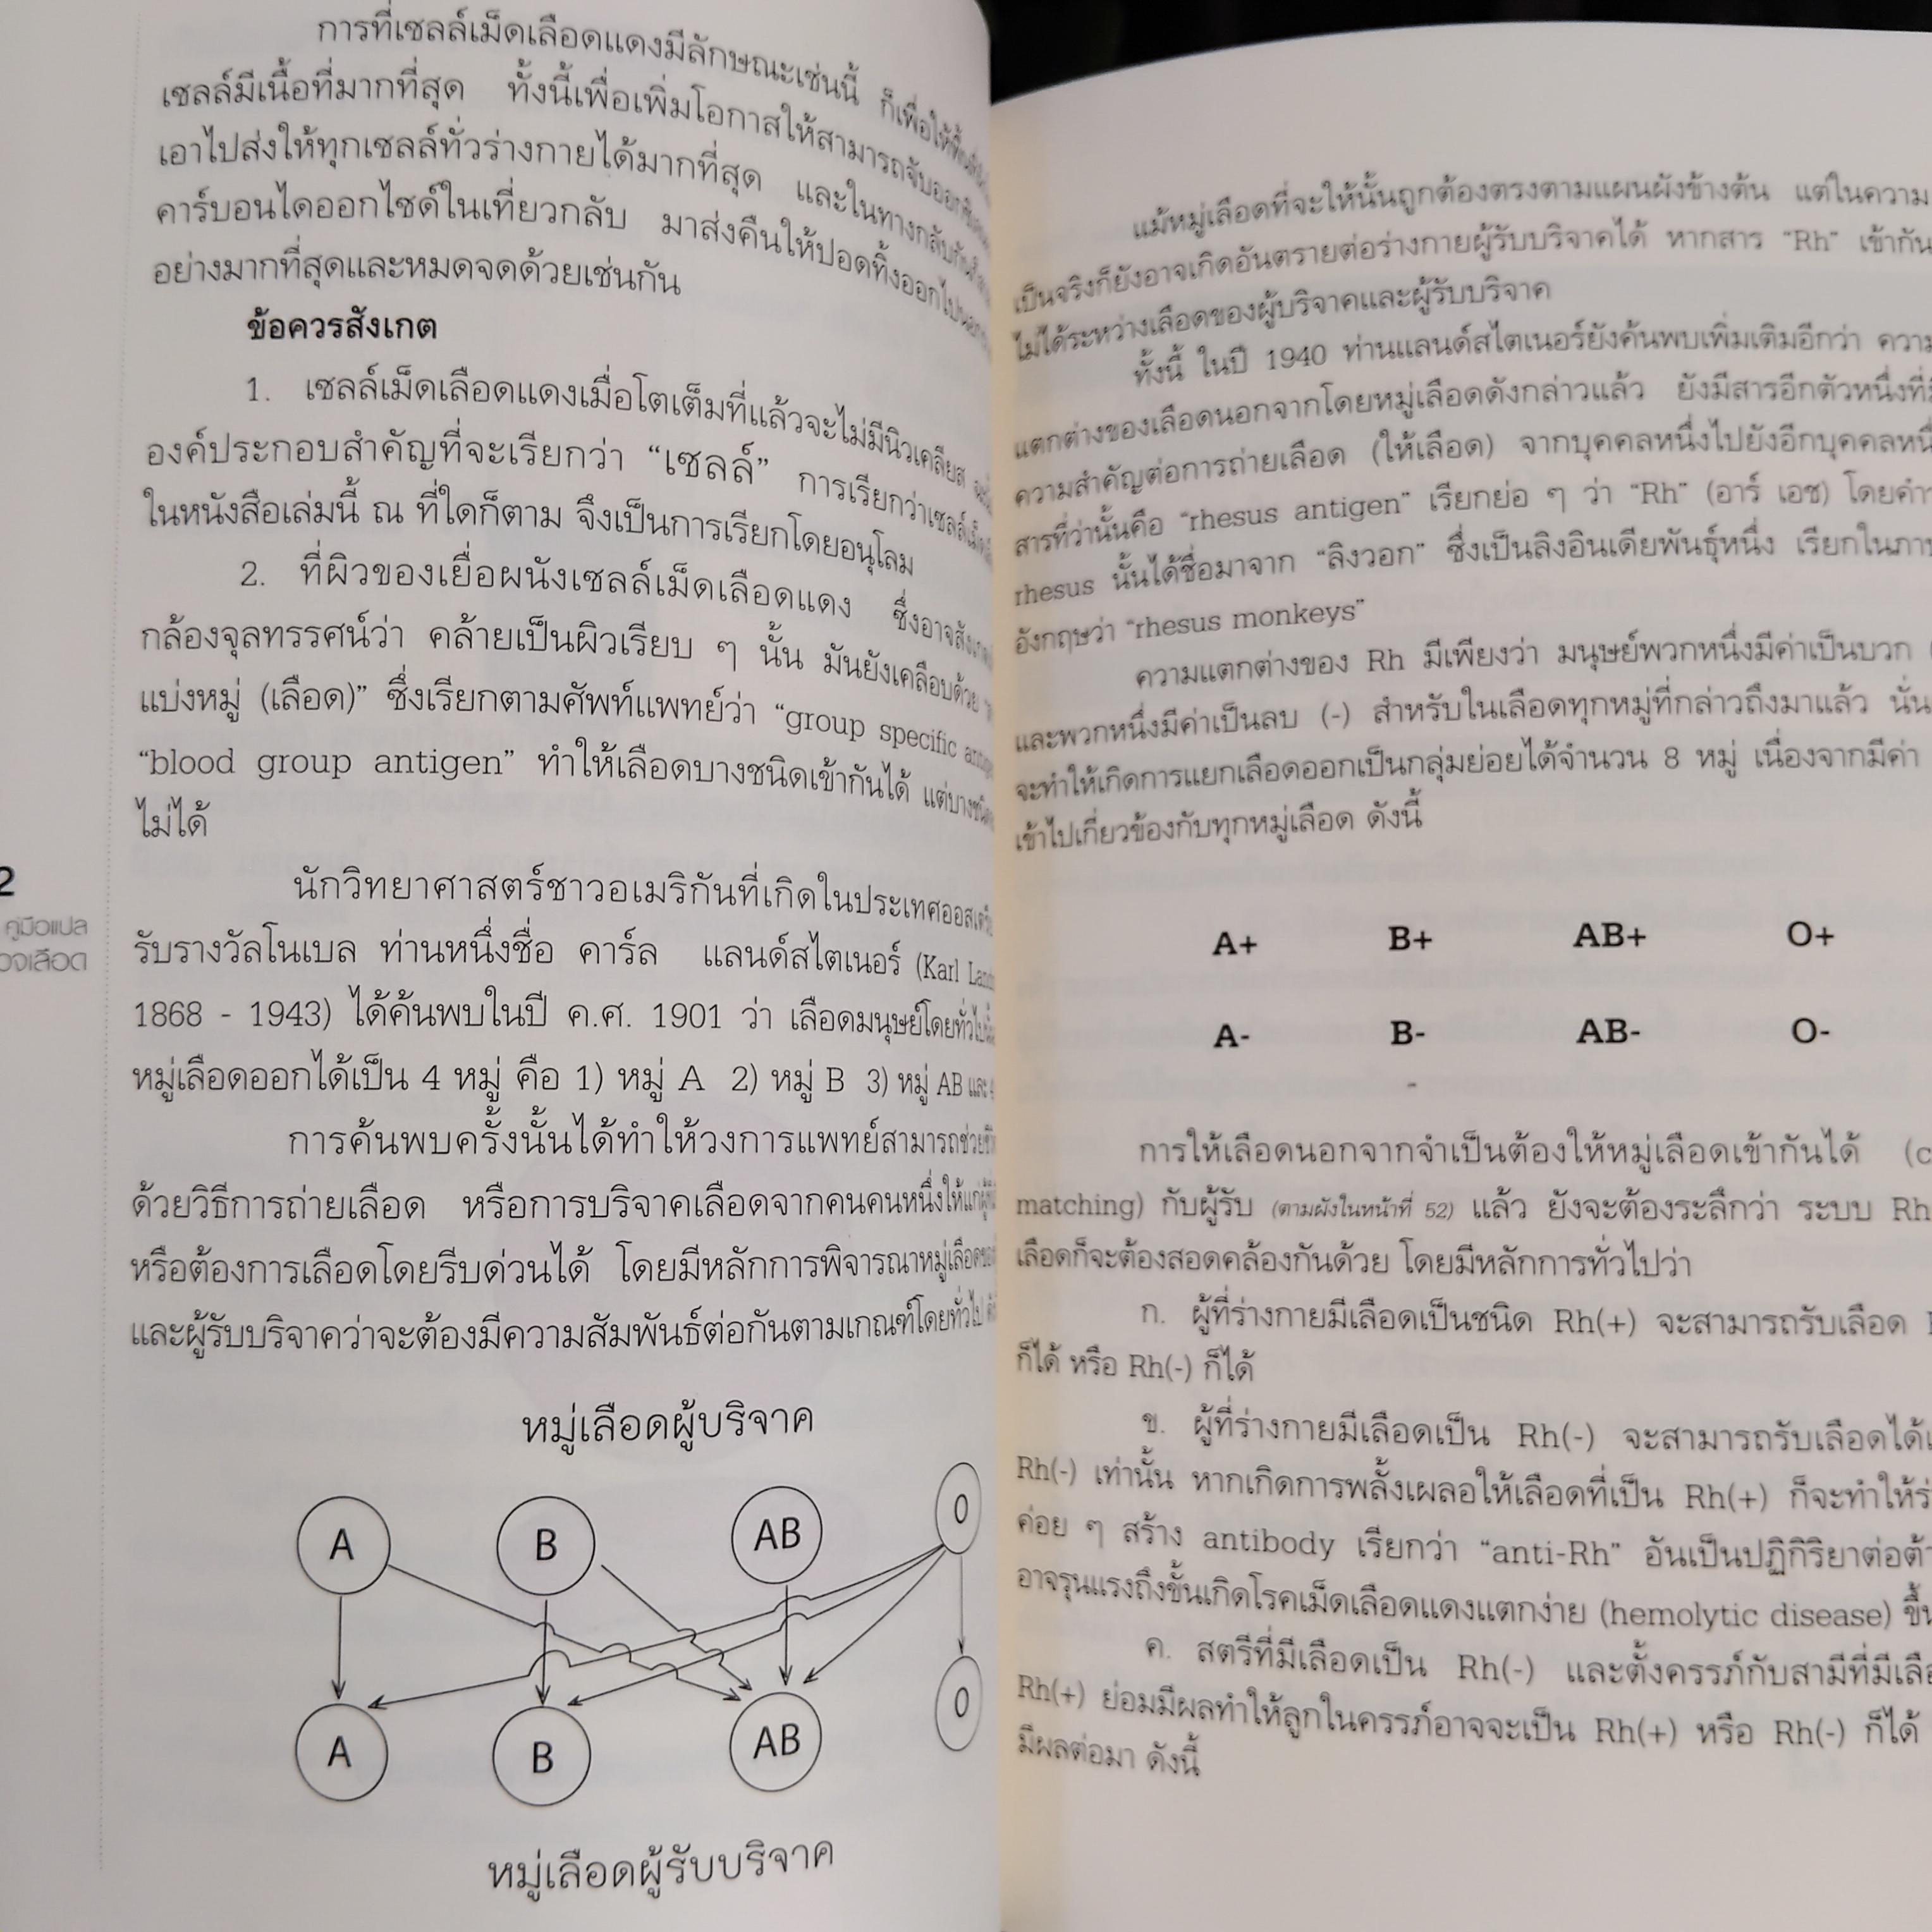 การที่เซลล์เม็ดเลือดแดงมีลักษณะเช่นนี้ ก็เพื่อให้
เซลล์มีเนื้อที่มากที่สุด ทั้งนี้เพื่อเพิ่มโอกาสให้สามารถจับ
เอาไปส่งให้ทุกเซลล์ทั่วร่างกายได้มากที่สุด และในทางกลับกัน
คาร์บอนไดออกไซด์ในเที่ยวกลับ มาส่งคืนให้ปอดทิ้งออกไป
อย่างมากที่สุดและหมดจดด้วยเช่นกัน
ข้อควรสังเกต
1. เซลล์เม็ดเลือดแดงเมื่อโตเต็มที่แล้วจะไม่มีนิวเคลียส
องค์ประกอบสำคัญที่จะเรียกว่า “เซลล์” การเรียกว่าเซลล์
ในหนังสือเล่มนี้ ณ ที่ใดก็ตาม จึงเป็นการเรียกโดยอนุโลม
2. ที่ผิวของเยื่อผนังเซลล์เม็ดเลือดแดง ซึ่งอาจ
กล้องจุลทรรศน์ว่า คล้ายเป็นผิวเรียบ ๆ นั้น มันยังเคลือบด้วย
แบ่งหมู่ (เลือด)” ซึ่งเรียกตามศัพท์แพทย์ว่า “group specific
“blood group antigen” ทำให้เลือดบางชนิดเข้ากันได้ แต่บาง
ไม่ได้
นักวิทยาศาสตร์ชาวอเมริกันที่เกิดในประเทศ
รับรางวัลโนเบล ท่านหนึ่งชื่อ คาร์ล แลนด์สไตเนอร์ (Karl
1868 - 1943) ได้ค้นพบในปี ค.ศ. 1901 ว่า เลือดมนุษย์โดยทั่วไป
หมู่เลือดออกได้เป็น 4 หมู่ คือ 1) หมู่ A 2) หมู่ B 3) หมู่ AB และ
การค้นพบครั้งนั้นได้ทำให้วงการแพทย์สามารถช่วย
ด้วยวิธีการถ่ายเลือด หรือการบริจาคเลือดจากคนคนหนึ่งให้แก่
หรือต้องการเลือดโดยรีบด่วนได้ โดยมีหลักการพิจารณาหมู่เลือด
และผู้รับบริจาคว่าจะต้องมีความสัมพันธ์ต่อกันตามเกณฑ์โดยทั่วไป
หมู่เลือดผู้บริจาค
A B AB O
A B AB O
หมู่เลือดผู้รับบริจาค
2
คู่มือแปล
เลือด
แม้หมู่เลือดที่จะให้นั้นถูกต้องตรงตามแผนผังข้างต้น แต่ในความ
เป็นจริงก็ยังอาจเกิดอันตรายต่อร่างกายผู้รับบริจาคได้ หากสาร “Rh” เข้ากัน
ไม่ได้ระหว่างเลือดของผู้บริจาคและผู้รับบริจาค
ทั้งนี้ ในปี 1940 ท่านแลนด์สไตเนอร์ยังค้นพบเพิ่มเติมอีกว่า ความ
แตกต่างของเลือดนอกจากโดยหมู่เลือดดังกล่าวแล้ว ยังมีสารอีกตัวหนึ่งที่
ความสำคัญต่อการถ่ายเลือด (ให้เลือด) จากบุคคลหนึ่งไปยังอีกบุคคล
สารที่ว่านั้นคือ “rhesus antigen” เรียกย่อ ๆ ว่า “Rh” (อาร์ เอช) โดย
rhesus นั้นได้ชื่อมาจาก “ลิงวอก” ซึ่งเป็นลิงอินเดียพันธุ์หนึ่ง เรียกใน
อังกฤษว่า “rhesus monkeys”
ความแตกต่างของ Rh มีเพียงว่า มนุษย์พวกหนึ่งมีค่าเป็นบวก
และพวกหนึ่งมีค่าเป็นลบ (-) สำหรับในเลือดทุกหมู่ที่กล่าวถึงมาแล้ว นั่น
จะทำให้เกิดการแยกเลือดออกเป็นกลุ่มย่อยได้จำนวน 8 หมู่ เนื่องจากมีค่า
เข้าไปเกี่ยวข้องกับทุกหมู่เลือด ดังนี้
A+ B+ AB+ O+
A- B- AB- O-
การให้เลือดนอกจากจำเป็นต้องให้หมู่เลือดเข้ากันได้
matching) กับผู้รับ (ตามผังในหน้าที่ 52) แล้ว ยังจะต้องระลึกว่า ระบบ Rh
เลือดก็จะต้องสอดคล้องกันด้วย โดยมีหลักการทั่วไปว่า
ก. ผู้ที่ร่างกายมีเลือดเป็นชนิด Rh(+) จะสามารถรับเลือด
ก็ได้ หรือ Rh(-) ก็ได้
ข. ผู้ที่ร่างกายมีเลือดเป็น Rh(-) จะสามารถรับเลือดได้
Rh(-) เท่านั้น หากเกิดการพลั้งเผลอให้เลือดที่เป็น Rh(+) ก็จะทำให้
ค่อย ๆ สร้าง antibody เรียกว่า “anti-Rh” อันเป็นปฏิกิริยาต่อ
อาจรุนแรงถึงขั้นเกิดโรคเม็ดเลือดแดงแตกง่าย (hemolytic disease)
ค. สตรีที่มีเลือดเป็น Rh(-) และตั้งครรภ์กับสามีที่มี
Rh(+) ย่อมมีผลทำให้ลูกในครรภ์อาจจะเป็น Rh(+) หรือ Rh(-) ก็ได้
มีผลต่อมา ดังนี้